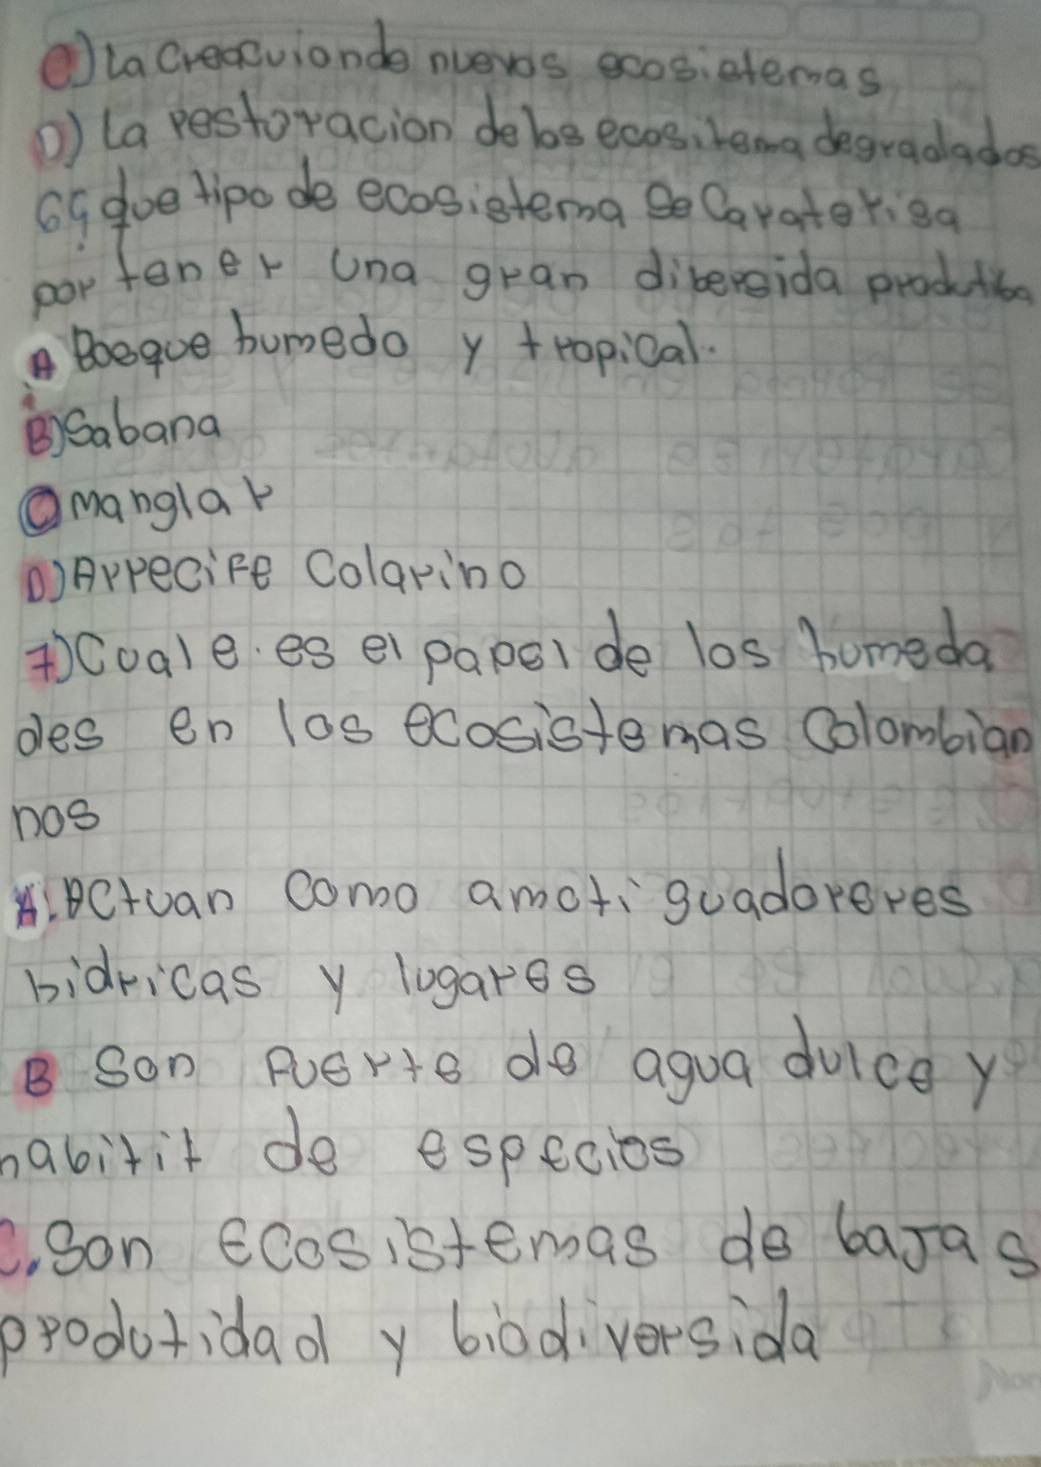 C) La Creacuionde nuevos ecosistemas
D) La restoracion de los ecositema degradados
6¿ que tipo de ecosistema se Carateriza
por tener una gran diversida produtiba
A Bosque humedo y tropical.
B) Sabana
C manglar
D) Arrecife Colarino
7) Cuale es el papel de los humeda
des en los ecosistemas Colombian
nos
A. Actuan como amotiguadoreres
hidricas y lugares
B Son Puerte de agua dulce y
habitit de especios
C. Son Ecosistemas de bajas
produtidad y biodiversida